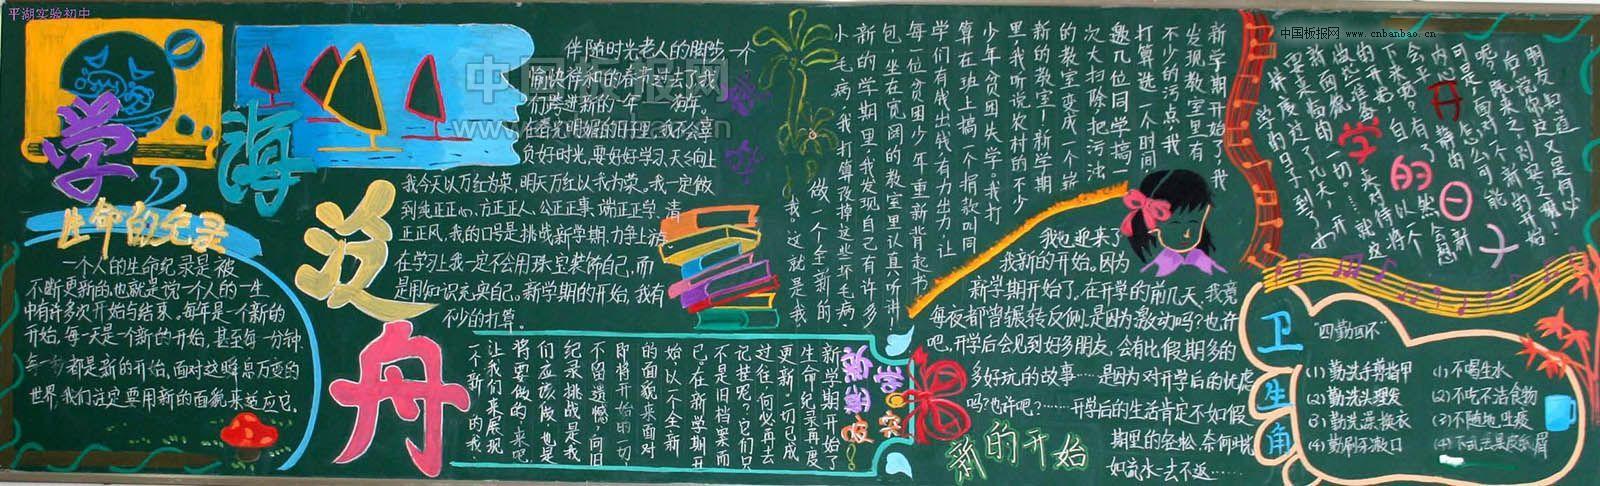 平湖实验初中
中国板报网 www.cnbanbao.cn
中国板报网
学海泛舟
生命的纪录
一个人的生命纪录是被
不断更新的,也就是说一个人的一生
中有许多次开始与结束。每年是一个新的
开始,每一天是一个新的开始,甚至每一分钟
每一秒都是新的开始,面对这瞬息万变的
世界,我们注定要用新的面貌来适应它。
伴随时光老人的脚步,一个
愉快祥和的春节过去了,我
们跨进新的一年——狗年,
在春光明媚的日子里,我不会辜
负好时光,要好好学习,天天向上
我今天以万红为荣,明天万红以我为荣。我一定做
到纯正正心、方正正人、公正正事、端正正学、清
正正风,我的口号是挑战新学期,力争上游
在学习上我一定不会用珠宝装饰自己,而
是用知识充实自己。新学期的开始,我有
不少的打算。
新学期开始了,我
发现教室里有
不少的污点,我
打算选一个时间
邀几位同学搞一
次大扫除,把污浊
的教室变成一个崭
新的教室!新学期
里,我听说农村的不少
少年贫困失学。我打
算在班上搞一个捐款,叫同
学们有钱出钱,有力出力,让
每一位贫困少年重新背起书
包,坐在宽阔的教室里认真听讲!
新的学期里,我发现自己有许多
小毛病,我打算改掉这些坏毛病,
做一个全新的
我,这就是我。
新学期开始了
生命纪录再度
更新,一切已成
过往,何必再去
记挂呢?它们只
不是旧档案而
已,在新学期开
始,以个全新
的面貌来面对
即将开始的一切,
不留遗憾,向旧
纪录挑战是我
们应该做,也是
将要做的,来吧,
让我们来展现
一个新的我
新学期新突破!
我也迎来了
我新的开始。因为
新学期开始了。在开学的前几天,我竟
每夜都曾辗转反侧。是因为激动吗?也许
吧。开学后会见到好多朋友,会有比假期多的
多好玩的故事……是因为对开学后的忧虑
吗?也许吧?……开学后的生活肯定不如假
期里的轻松,奈何时光
如流水一去不返……
新的开始
开学的日子
卫生角
"四勤四不"
(1)勤洗手剪指甲
(2)勤洗头理发
(3)勤洗澡换衣
(4)勤刷牙漱口
(1)不喝生水
(2)不吃不洁食物
(3)不随地吐痰